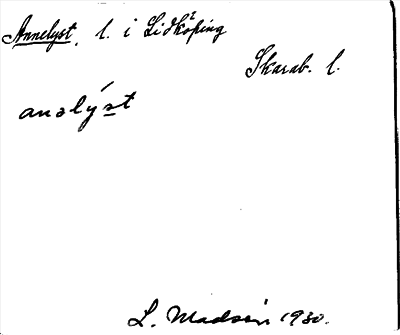 Annelyst, l. i Lidköping
Skarab. l.
analýst
L. Madsén 1930.